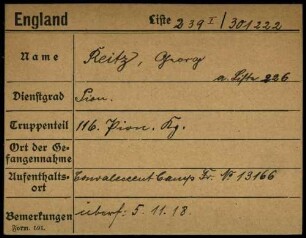 England Liste 239 I / 301222
Name Reitz, Georg
a. Liste 226
Dienstgrad Pion.
Truppenteil 116. Pion. Kg.
Ort der Gefangennahme
Aufenthaltsort Convalescent Camp Fr. No 13166
Bemerkungen überf: 5.11.18.
Form. 591.